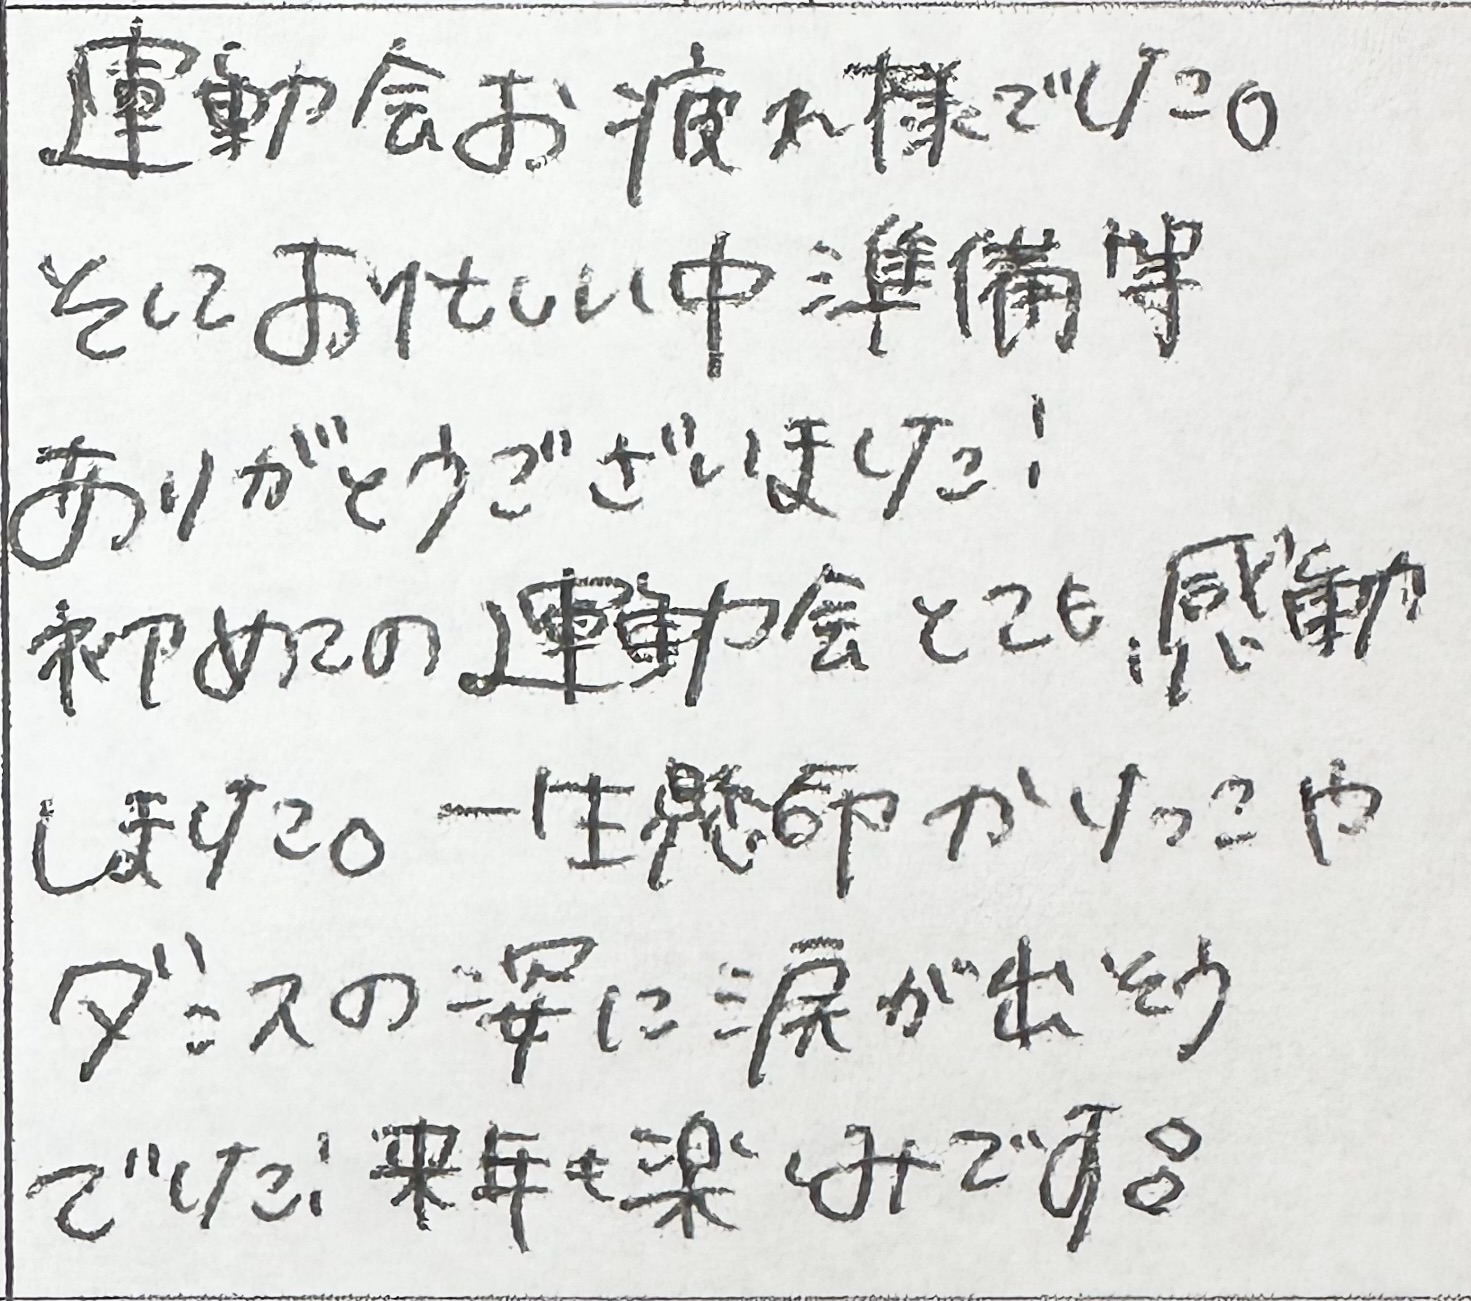 運動会お疲れ様でした。
そしておいそがしい中準備等
ありがとうございました!
初めての運動会とても感動
しました。一生懸命かけっこや
ダンスの姿に涙が出そう
でした!来年も楽しみです。